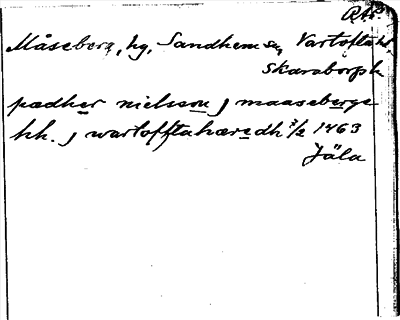 RAP
Måseberg, hg, Sandhem sn, Vartofta hd
Skaraborgs l.
pædher nielsson j maaseberge
hh. j wartofftahæredh 7/2 1463
Jäla